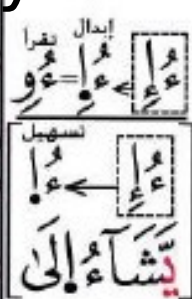 إبدال تقرأ
ءُ إِ < ءُ ! = ءُوِ
تسهيل
ءُ إِ ← ءُ !
يَّشَآءُ ا۪لَىٰ